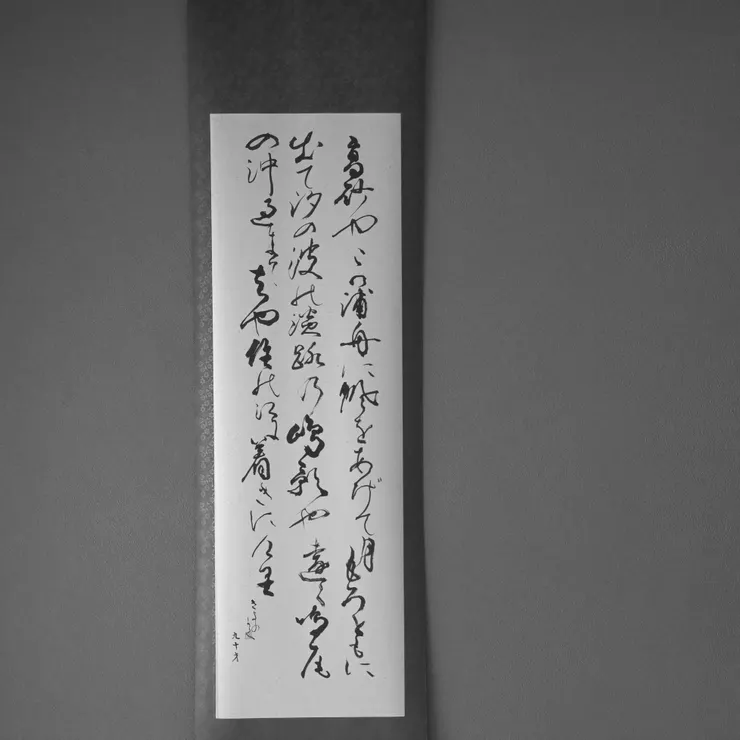 高砂やこの浦舟に帆をあげて月もろともに
出て汐の波の淡路の嶋影や遠く鳴尾
の沖過ぎてはや住の江に着きにけり
九十才